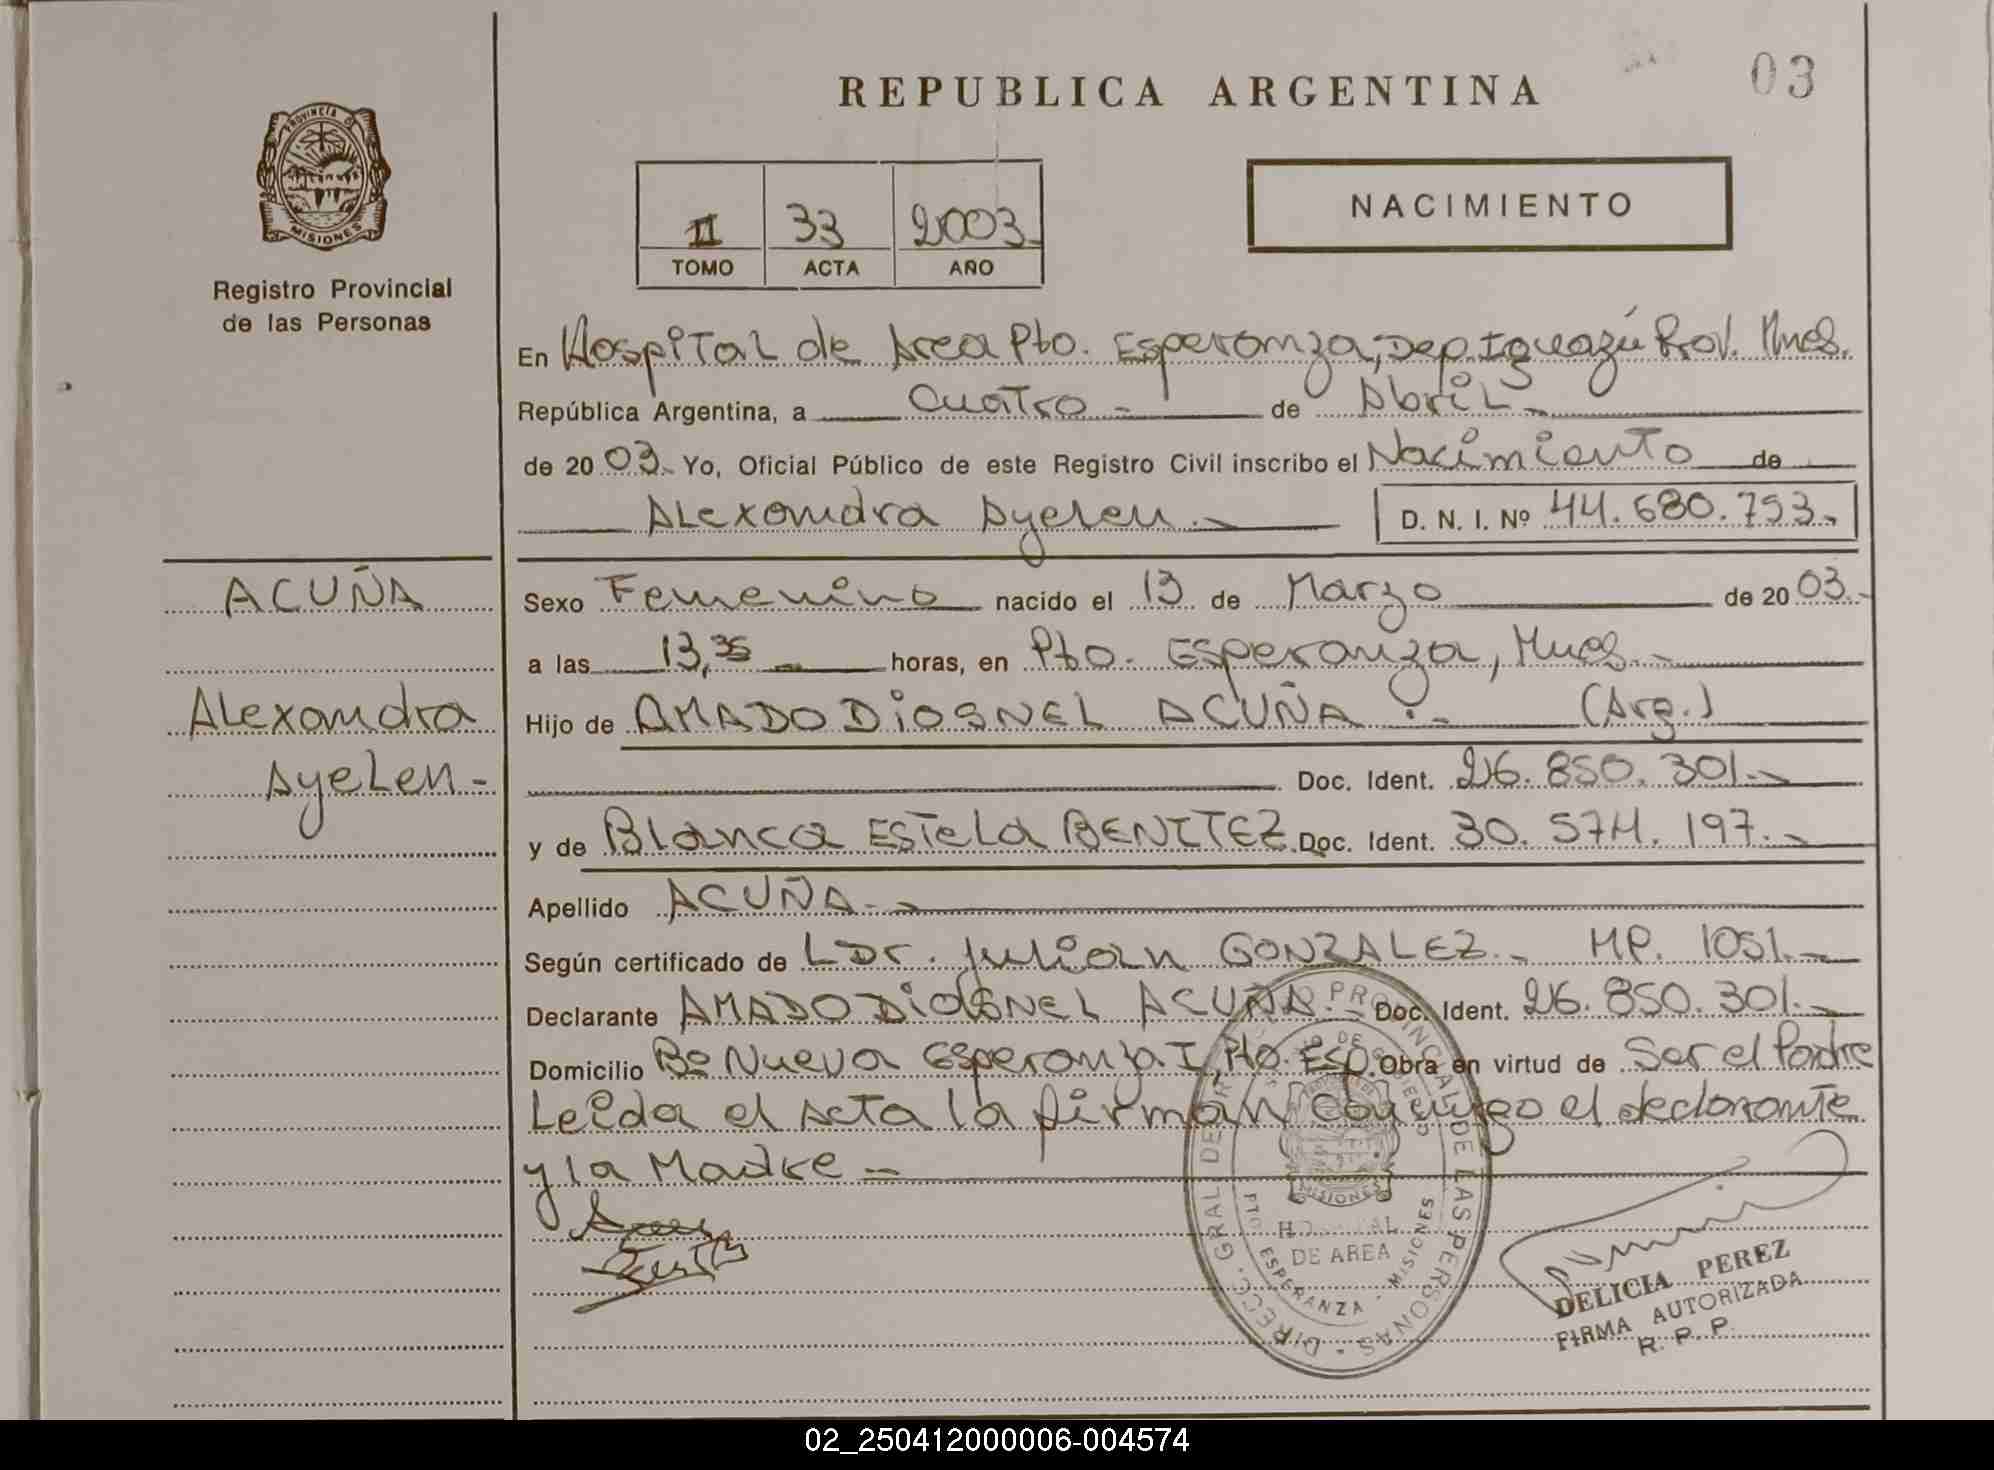 REPUBLICA ARGENTINA
03
PROVINCIA DE
MISIONES
Registro Provincial
de las Personas
II 33 2003
TOMO ACTA AÑO
NACIMIENTO
En Hospital de Area Pto. Esperanza, Dep. Iguazú Prov. Mnes.
República Argentina, a Cuatro - de Abril -
de 20 03. Yo, Oficial Público de este Registro Civil inscribo el Nacimiento de
Alexandra Ayelen.- D. N. I. Nº 44.680.793.-
ACUÑA
Alexandra
Ayelen-
Sexo Femenino nacido el 13 de Marzo de 20 03.-
a las 13,35 - horas, en Pto. Esperanza, Mnes.-
Hijo de AMADO DIOSNEL ACUÑA.- (Arg.)
Doc. Ident. 26.850.301.-
y de Blanca Estela BENITEZ. Doc. Ident. 30.574.197.-
Apellido ACUÑA.-
Según certificado de Dr. Julian GONZALEZ.- MP. 1051.-
Declarante AMADO DIOSNEL ACUÑA.- Doc. Ident. 26.850.301.-
Domicilio Bº Nueva Esperanza I, Pto. Esp. Obra en virtud de Ser el Padre
Leida el Acta la firman conmigo el declarante
y la Madre -
DIRECC. GRAL DE REGISTRO PROVINCIAL DE LAS PERSONAS
MISIONES
HOSPITAL
DE AREA
PTO ESPERANZA - MISIONES
DELICIA PEREZ
FIRMA AUTORIZADA
R. P. P.
02_250412000006-004574